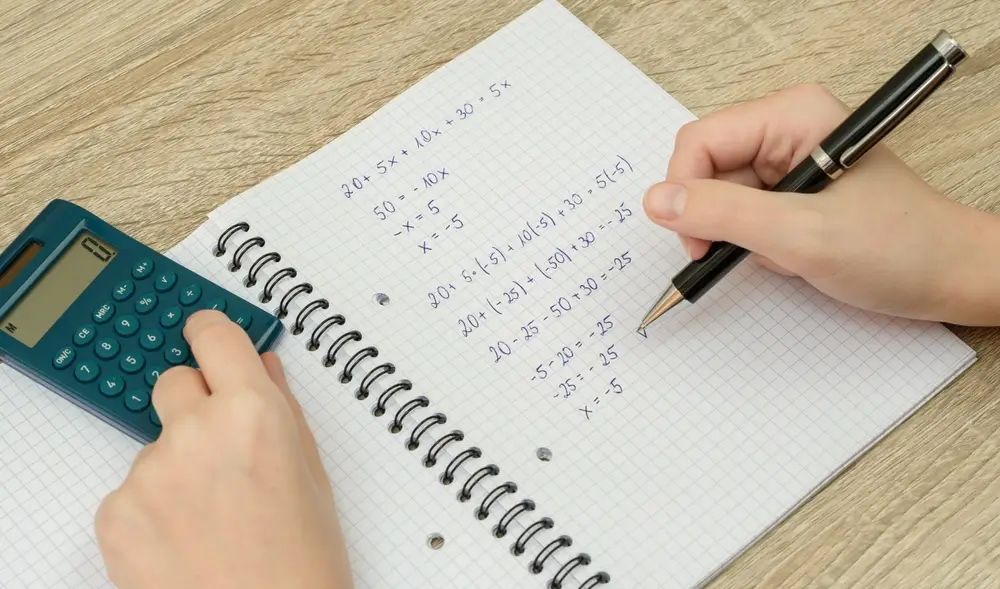 20 + 5x + 10x + 30 = 5x
50 = - 10x
-x = 5
x = -5
20 + 5·(-5) + 10(-5) + 30 = 5(-5)
20 + (-25) + (-50) + 30 = -25
20 - 25 - 50 + 30 = -25
-5 - 20 = -25
-25 = -25
x = -5
M
M+
M-
√
MRC
%
÷
CE
9
×
ON/C
8
6
7
5
3
4
2
1
=